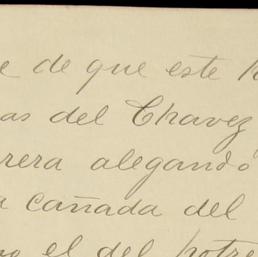 de que este
as del Chavez
rera alegando
a cañada del
el del potre